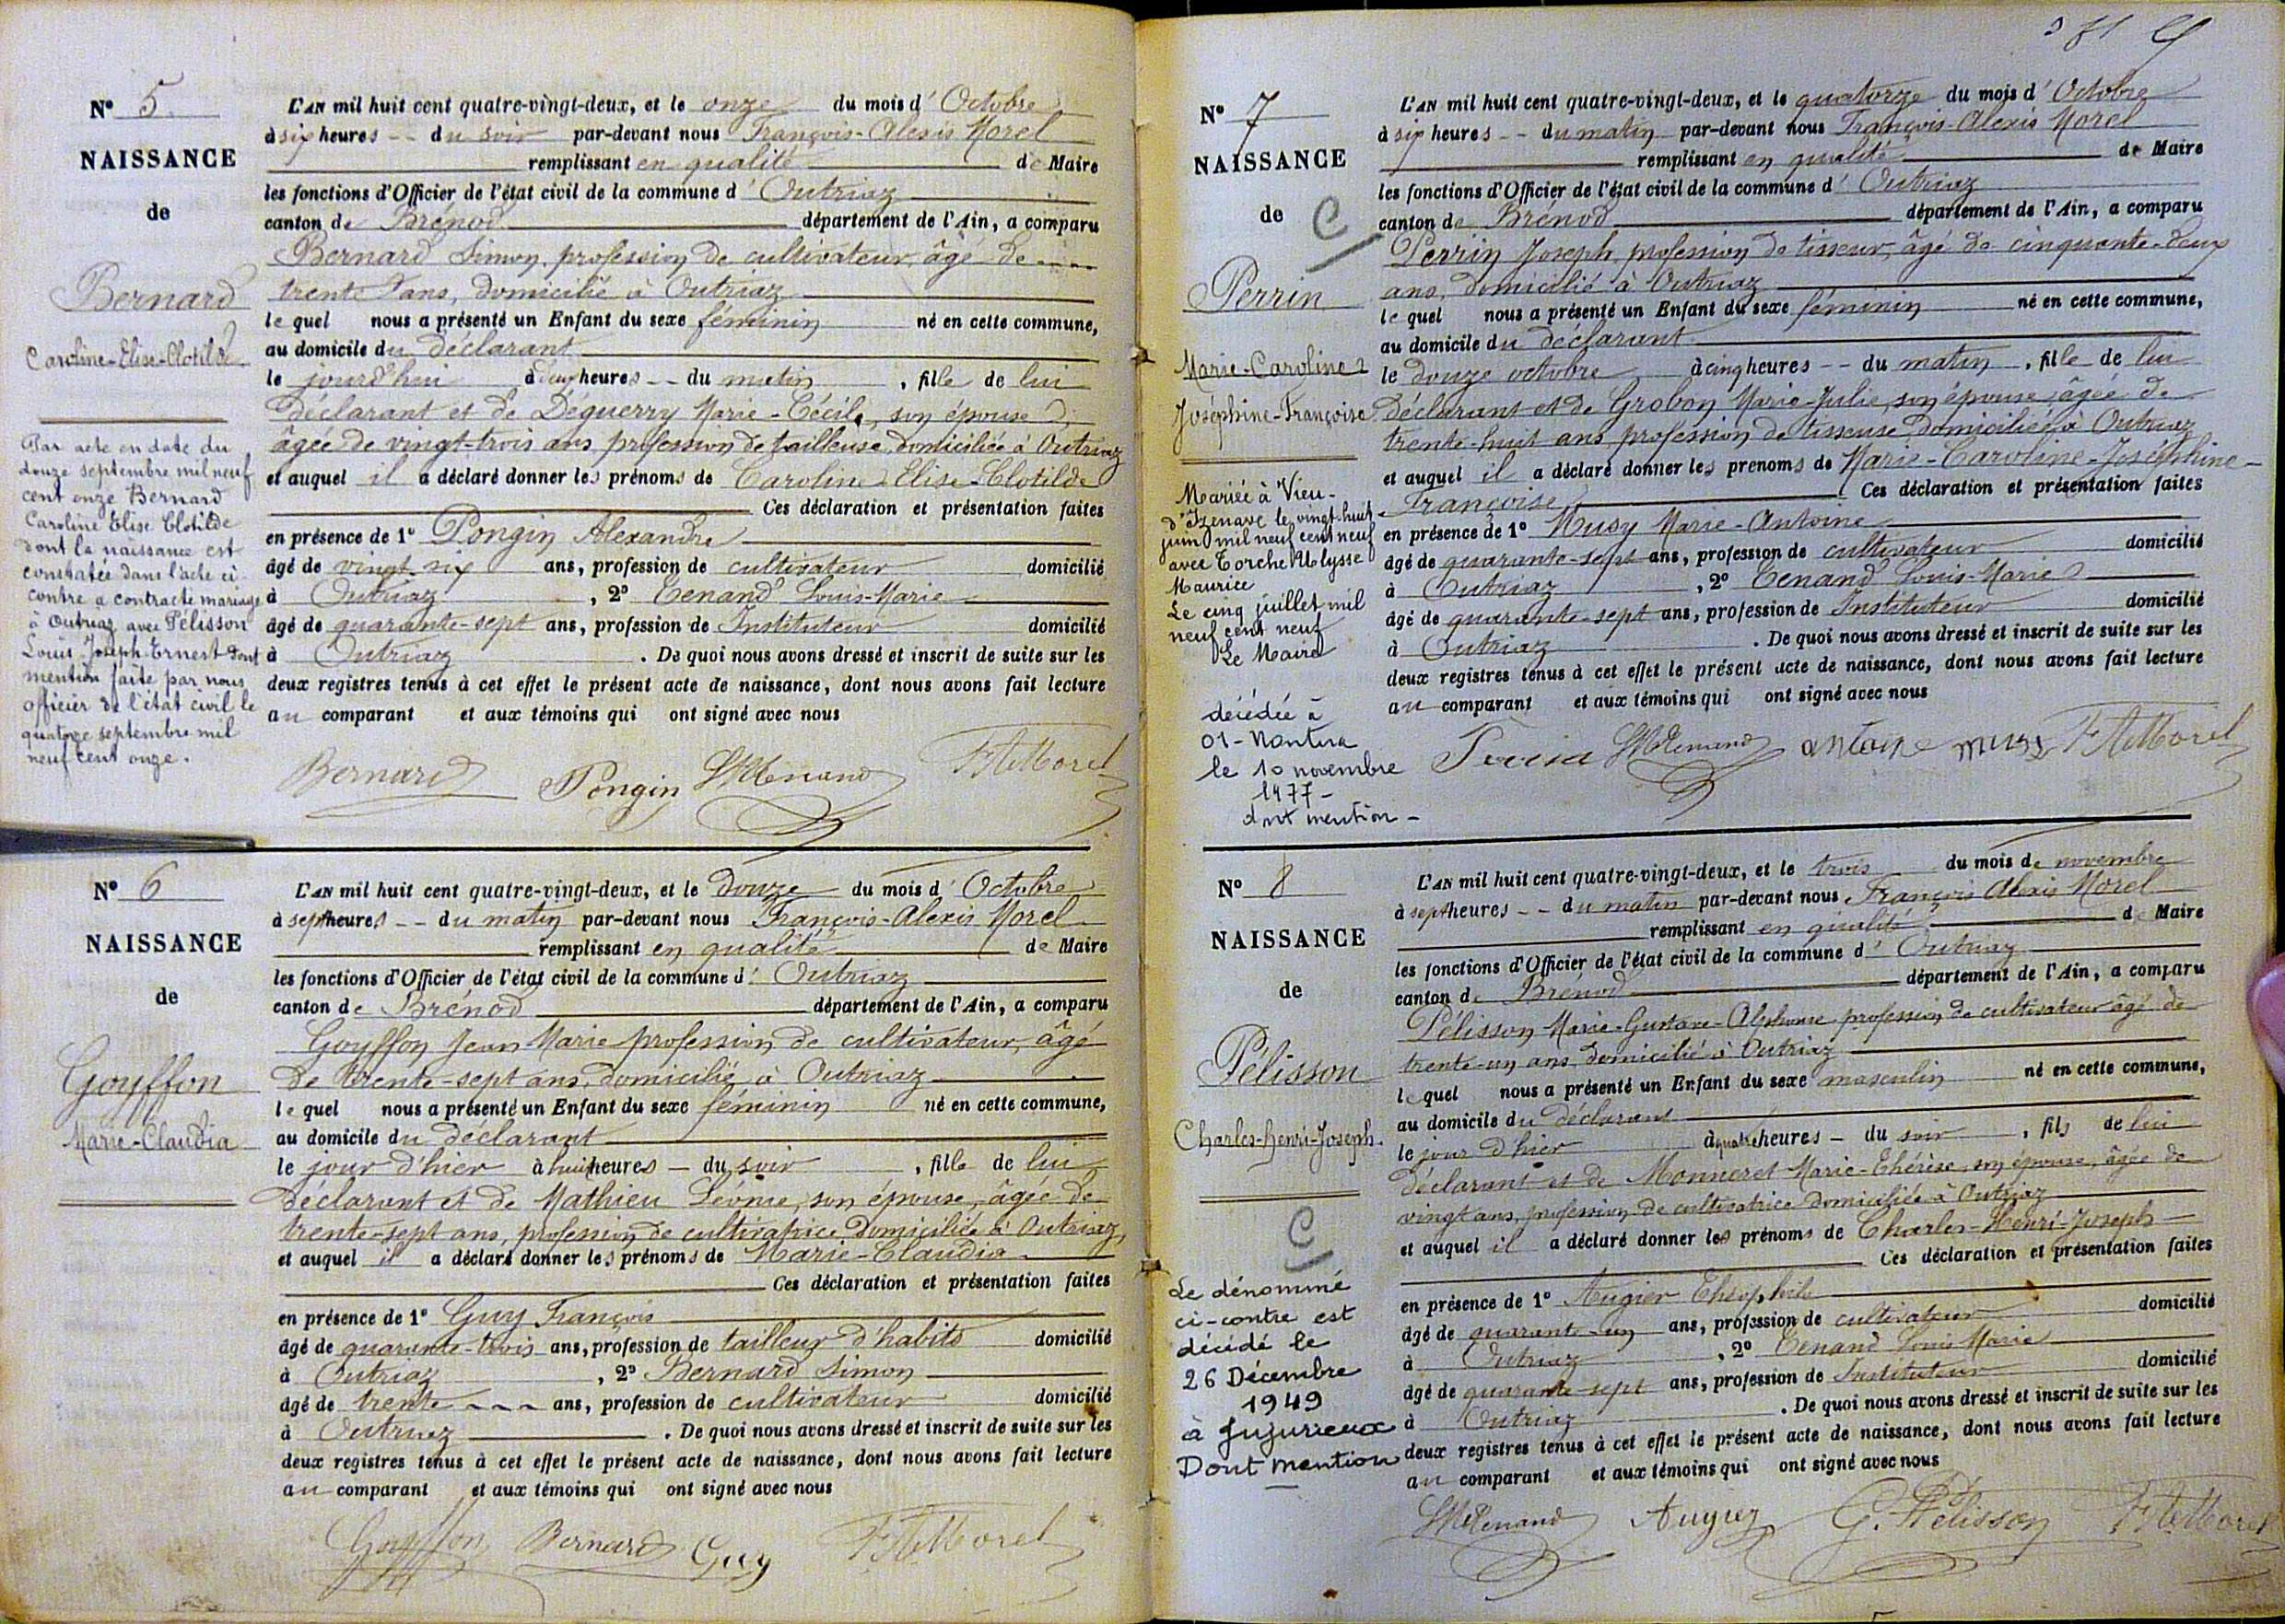 N° 5
NAISSANCE
de
Bernard
Caroline-Elise-Clotilde
Par acte en date du
douze septembre mil neuf
cent onze Bernard
Caroline Elise Clotilde
dont la naissance est
constatée dans l'acte ci-
contre a contracté mariage
à Outriaz avec Pélisson
Louis-Joseph-Ernest dont
mention faite par nous
officier de l'état civil le
quatorze septembre mil
neuf cent onze.
L'AN mil huit cent quatre-vingt-deux, et le onze du mois d'Octobre
à six heures -- du soir par-devant nous François-Alexis Morel
remplissant en qualité de Maire
les fonctions d'Officier de l'état civil de la commune d'Outriaz
canton de Brénod département de l'Ain, a comparu
Bernard Simon, profession de cultivateur, âgé de
trente ans, domicilié à Outriaz
lequel nous a présenté un Enfant du sexe féminin né en cette commune,
au domicile du déclarant
le jourd'hui à deux heures -- du matin, fille de lui
déclarant et de Déguerry Marie-Cécile, son épouse
âgée de vingt-trois ans, profession de tailleuse, domiciliée à Outriaz
et auquel il a déclaré donner les prénoms de Caroline Elise-Clotilde
Ces déclaration et présentation faites
en présence de 1° Pongin Alexandre
âgé de vingt-six ans, profession de cultivateur domicilié
à Outriaz, 2° Tenand Louis-Marie
âgé de quarante-sept ans, profession de Instituteur domicilié
à Outriaz. De quoi nous avons dressé et inscrit de suite sur les
deux registres tenus à cet effet le présent acte de naissance, dont nous avons fait lecture
au comparant et aux témoins qui ont signé avec nous
Bernard Pongin LMTenand FAMorel
N° 6
NAISSANCE
de
Goyffon
Marie-Claudia
L'AN mil huit cent quatre-vingt-deux, et le douze du mois d'Octobre
à sept heures -- du matin par-devant nous François-Alexis Morel
remplissant en qualité de Maire
les fonctions d'Officier de l'état civil de la commune d'Outriaz
canton de Brénod département de l'Ain, a comparu
Goyffon Jean Marie profession de cultivateur, âgé
de trente-sept ans, domicilié à Outriaz
lequel nous a présenté un Enfant du sexe féminin né en cette commune,
au domicile du déclarant
le jour d'hier à huit heures - du soir, fille de lui
déclarant et de Mathieu Léonie, son épouse, âgée de
trente-sept ans, profession de cultivatrice, domiciliée à Outriaz,
et auquel il a déclaré donner les prénoms de Marie-Claudia
Ces déclaration et présentation faites
en présence de 1° Guy François
âgé de quarante-trois ans, profession de tailleur d'habits domicilié
à Outriaz, 2° Bernard Simon
âgé de trente ans, profession de cultivateur domicilié
à Outriaz. De quoi nous avons dressé et inscrit de suite sur les
deux registres tenus à cet effet le présent acte de naissance, dont nous avons fait lecture
au comparant et aux témoins qui ont signé avec nous
Goyffon Bernard Guy FAMorel
N° 7
NAISSANCE
de
C
Perrin
Marie-Caroline
Joséphine-Françoise
Mariée à Vieu-
d'Izenave le vingt-huit
juin mil neuf cent neuf
avec Torche Ulysse
Maurice
Le cinq juillet mil
neuf cent neuf
Le Maire
décédée à
01-Nantua
le 10 novembre
1977-
dont mention-
L'AN mil huit cent quatre-vingt-deux, et le quatorze du mois d'Octobre
à six heures -- du matin par-devant nous François-Alexis Morel
remplissant en qualité de Maire
les fonctions d'Officier de l'état civil de la commune d'Outriaz
canton de Brénod département de l'Ain, a comparu
Perrin Joseph, profession de tisseur, âgé de cinquante-deux
ans, domicilié à Outriaz
lequel nous a présenté un Enfant du sexe féminin né en cette commune,
au domicile du déclarant
le douze octobre à cinq heures -- du matin, fille de lui
déclarant et de Grobon Marie-Julie, son épouse, âgée de
trente-huit ans, profession de tisseuse domiciliée à Outriaz
et auquel il a déclaré donner les prénoms de Marie-Caroline-Joséphine-
Françoise Ces déclaration et présentation faites
en présence de 1° Musy Marie-Antoine
âgé de quarante-sept ans, profession de cultivateur domicilié
à Outriaz, 2° Tenand Louis-Marie
âgé de quarante-sept ans, profession de Instituteur domicilié
à Outriaz. De quoi nous avons dressé et inscrit de suite sur les
deux registres tenus à cet effet le présent acte de naissance, dont nous avons fait lecture
au comparant et aux témoins qui ont signé avec nous
LMTenand antoine musy FAMorel
N° 8
NAISSANCE
de
Pélisson
Charles-Henri-Joseph
C
Le dénommé
ci-contre est
décédé le
26 Décembre
1949
à Jujurieux
Dont mention
L'AN mil huit cent quatre-vingt-deux, et le trois du mois de novembre
à sept heures -- du matin par-devant nous François Alexis Morel
remplissant en qualité de Maire
les fonctions d'Officier de l'état civil de la commune d'Outriaz
canton de Brénod département de l'Ain, a comparu
Pélisson Marie-Gustave-Alphonse profession de cultivateur âgé de
trente-un ans, domicilié à Outriaz
lequel nous a présenté un Enfant du sexe masculin né en cette commune,
au domicile du déclarant
le jour d'hier à quatre heures - du soir, fils de lui
déclarant et de Monneret Marie-Thérèse, son épouse, âgée de
vingt ans, profession de cultivatrice domiciliée à Outriaz
et auquel il a déclaré donner les prénoms de Charles-Henri-Joseph
Ces déclaration et présentation faites
en présence de 1° Augier Théophile
âgé de quarante-un ans, profession de cultivateur domicilié
à Outriaz, 2° Tenand Louis Marie
âgé de quarante-sept ans, profession de Instituteur domicilié
à Outriaz. De quoi nous avons dressé et inscrit de suite sur les
deux registres tenus à cet effet le présent acte de naissance, dont nous avons fait lecture
au comparant et aux témoins qui ont signé avec nous
LMTenand Augier G. Pélisson FAMorel